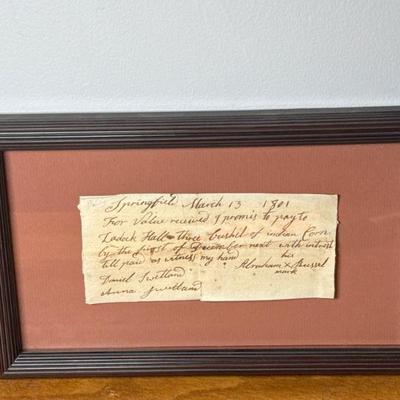 Springfield March 13 1801
For Value received I promis to pay to
Zadock Hall three bushil of indian Corn
by the first of December next with intrist
till paid as witness my hand his
Daniel Swetland Abraham X Russel
Anna Swetland mark